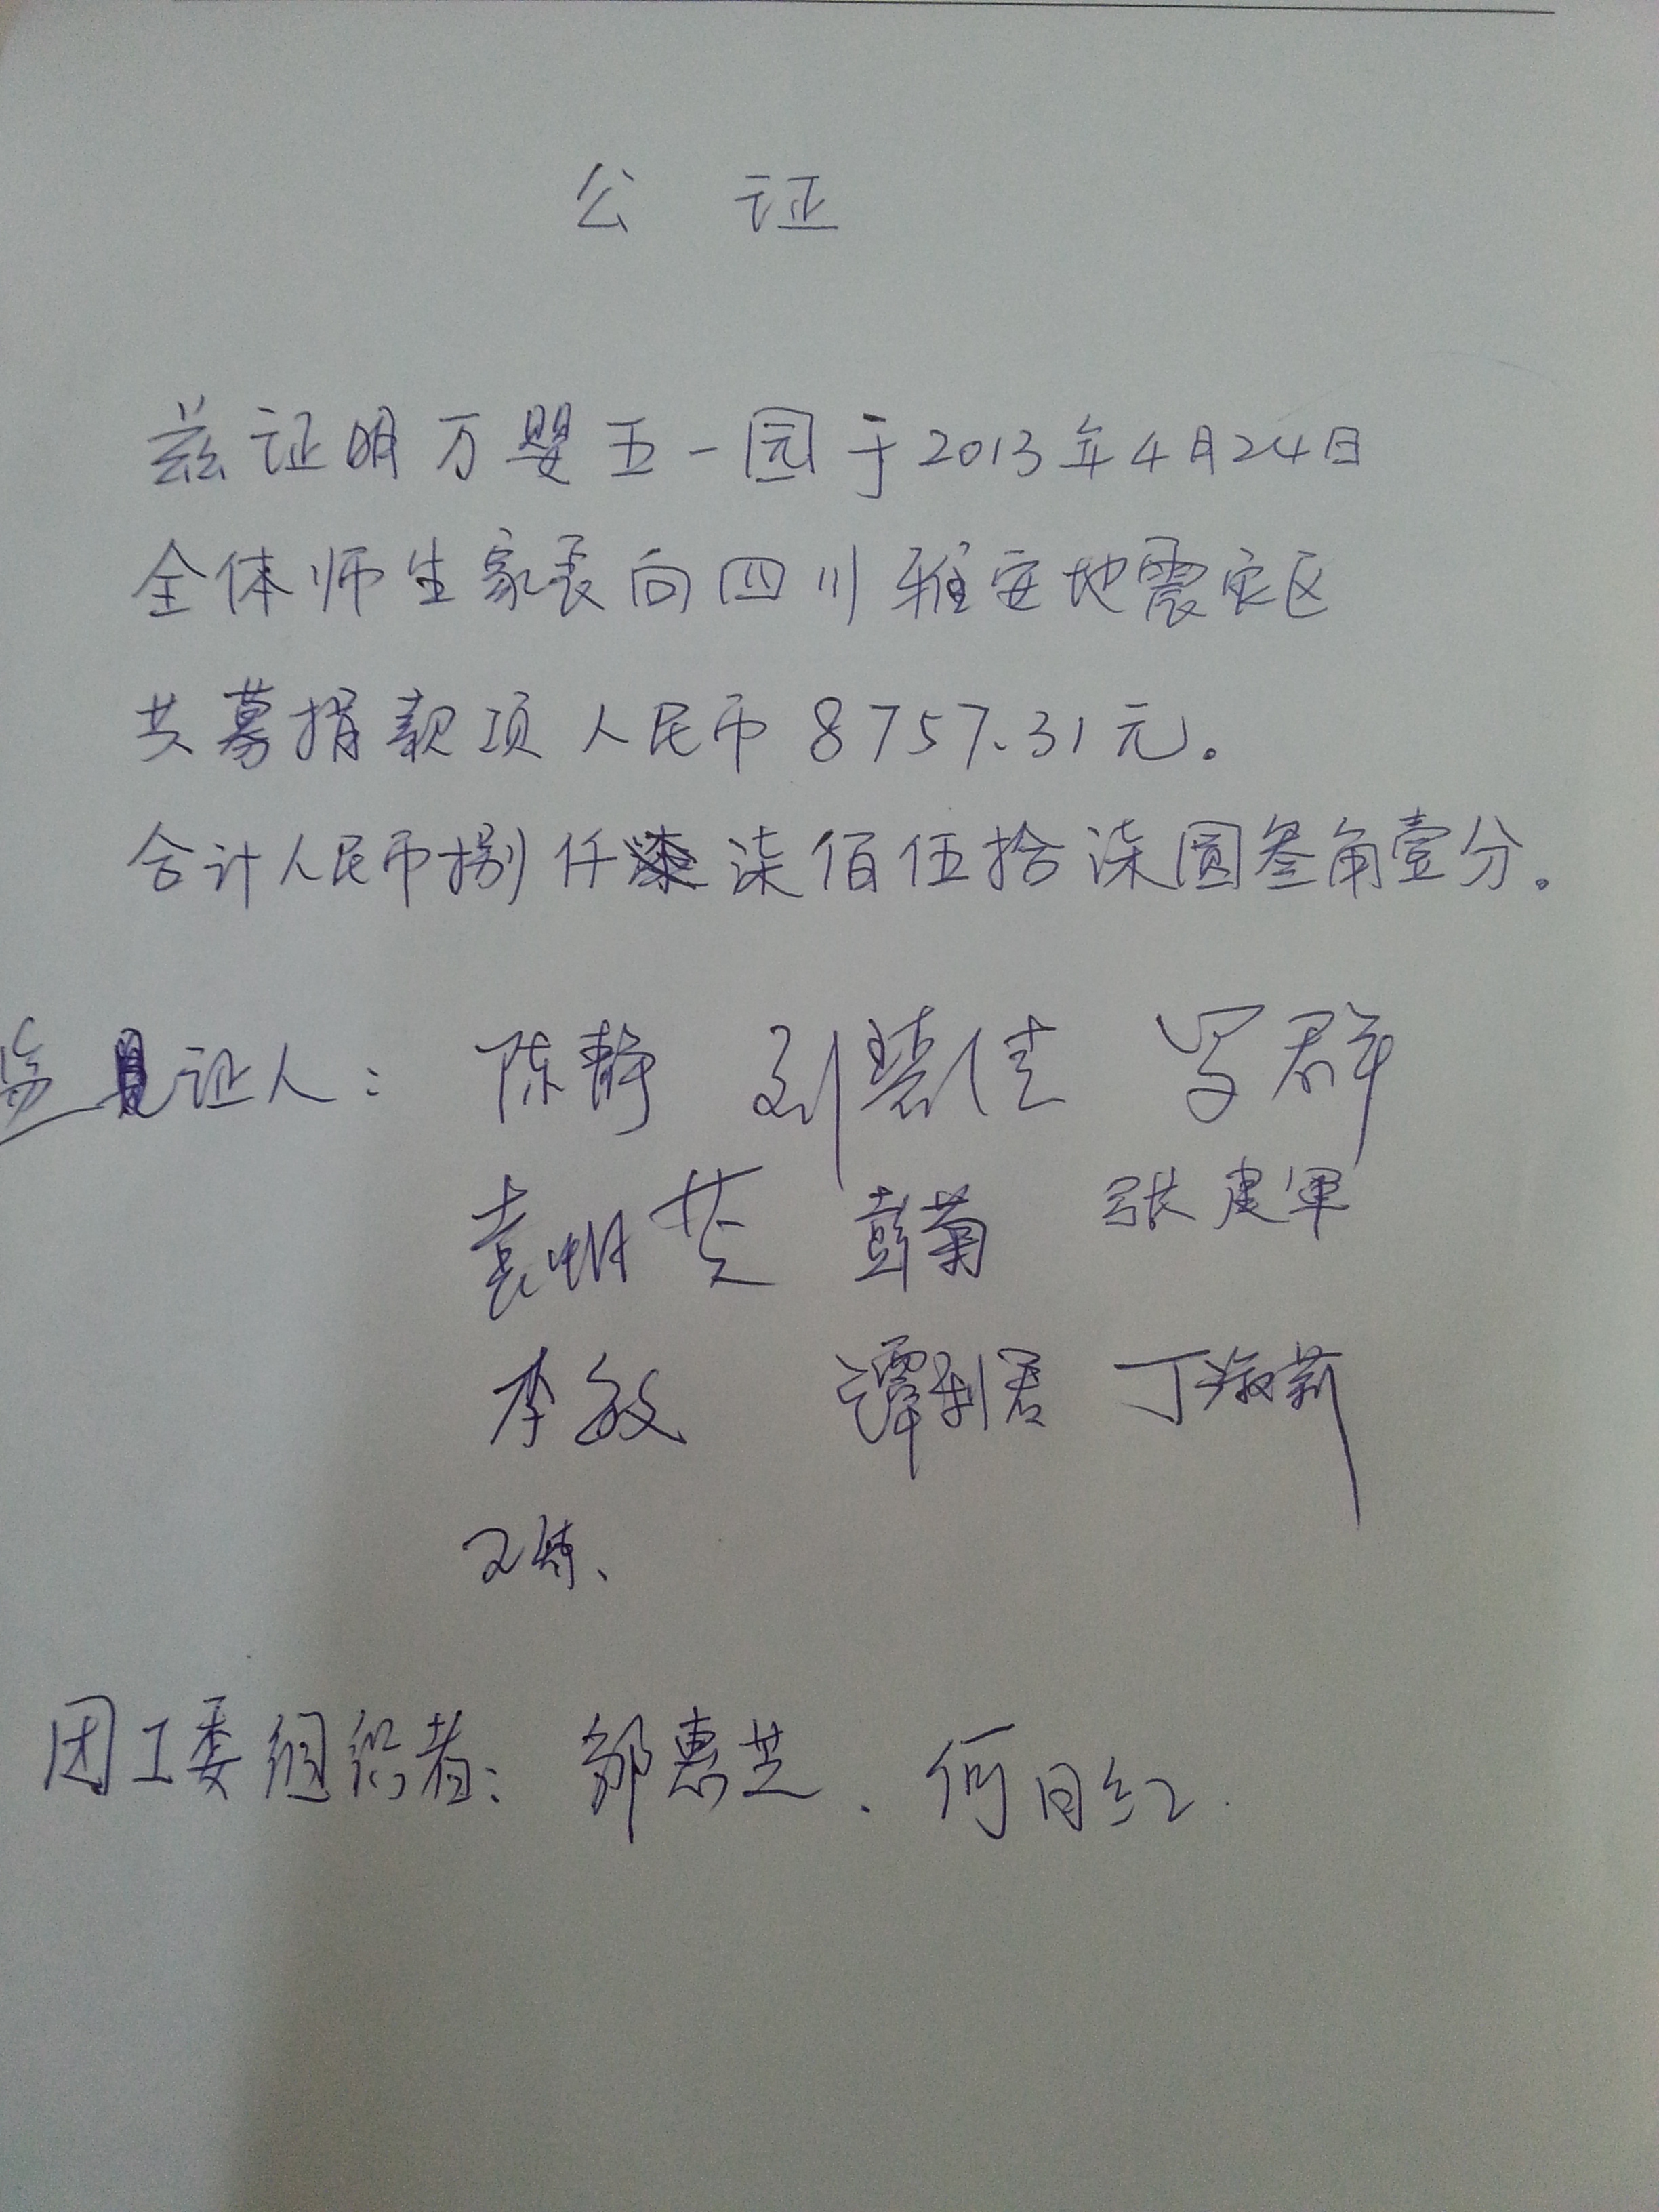 公 证
兹证明万婴五一园于2013年4月24日
全体师生家长向四川雅安地震灾区
共募捐款项人民币8757.31元。
合计人民币捌仟柒佰伍拾柒圆叁角壹分。
见证人： 陈静 刘慧佳 罗群
袁明芝 彭菊 张建军
李敏 谭利君 丁淑莉
团工委组织者：邹惠芝、何日红.